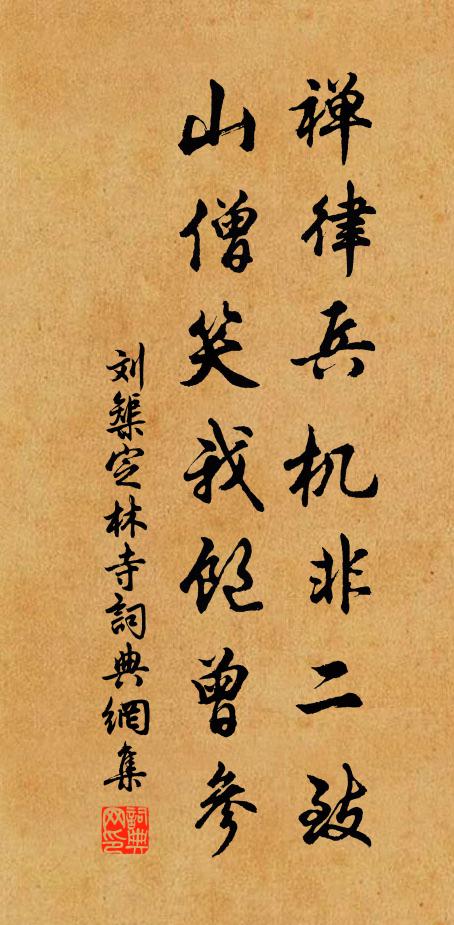 禅律兵机非二致
山僧笑我饱曾参
刘榘定林寺詞典網集
詞典网印